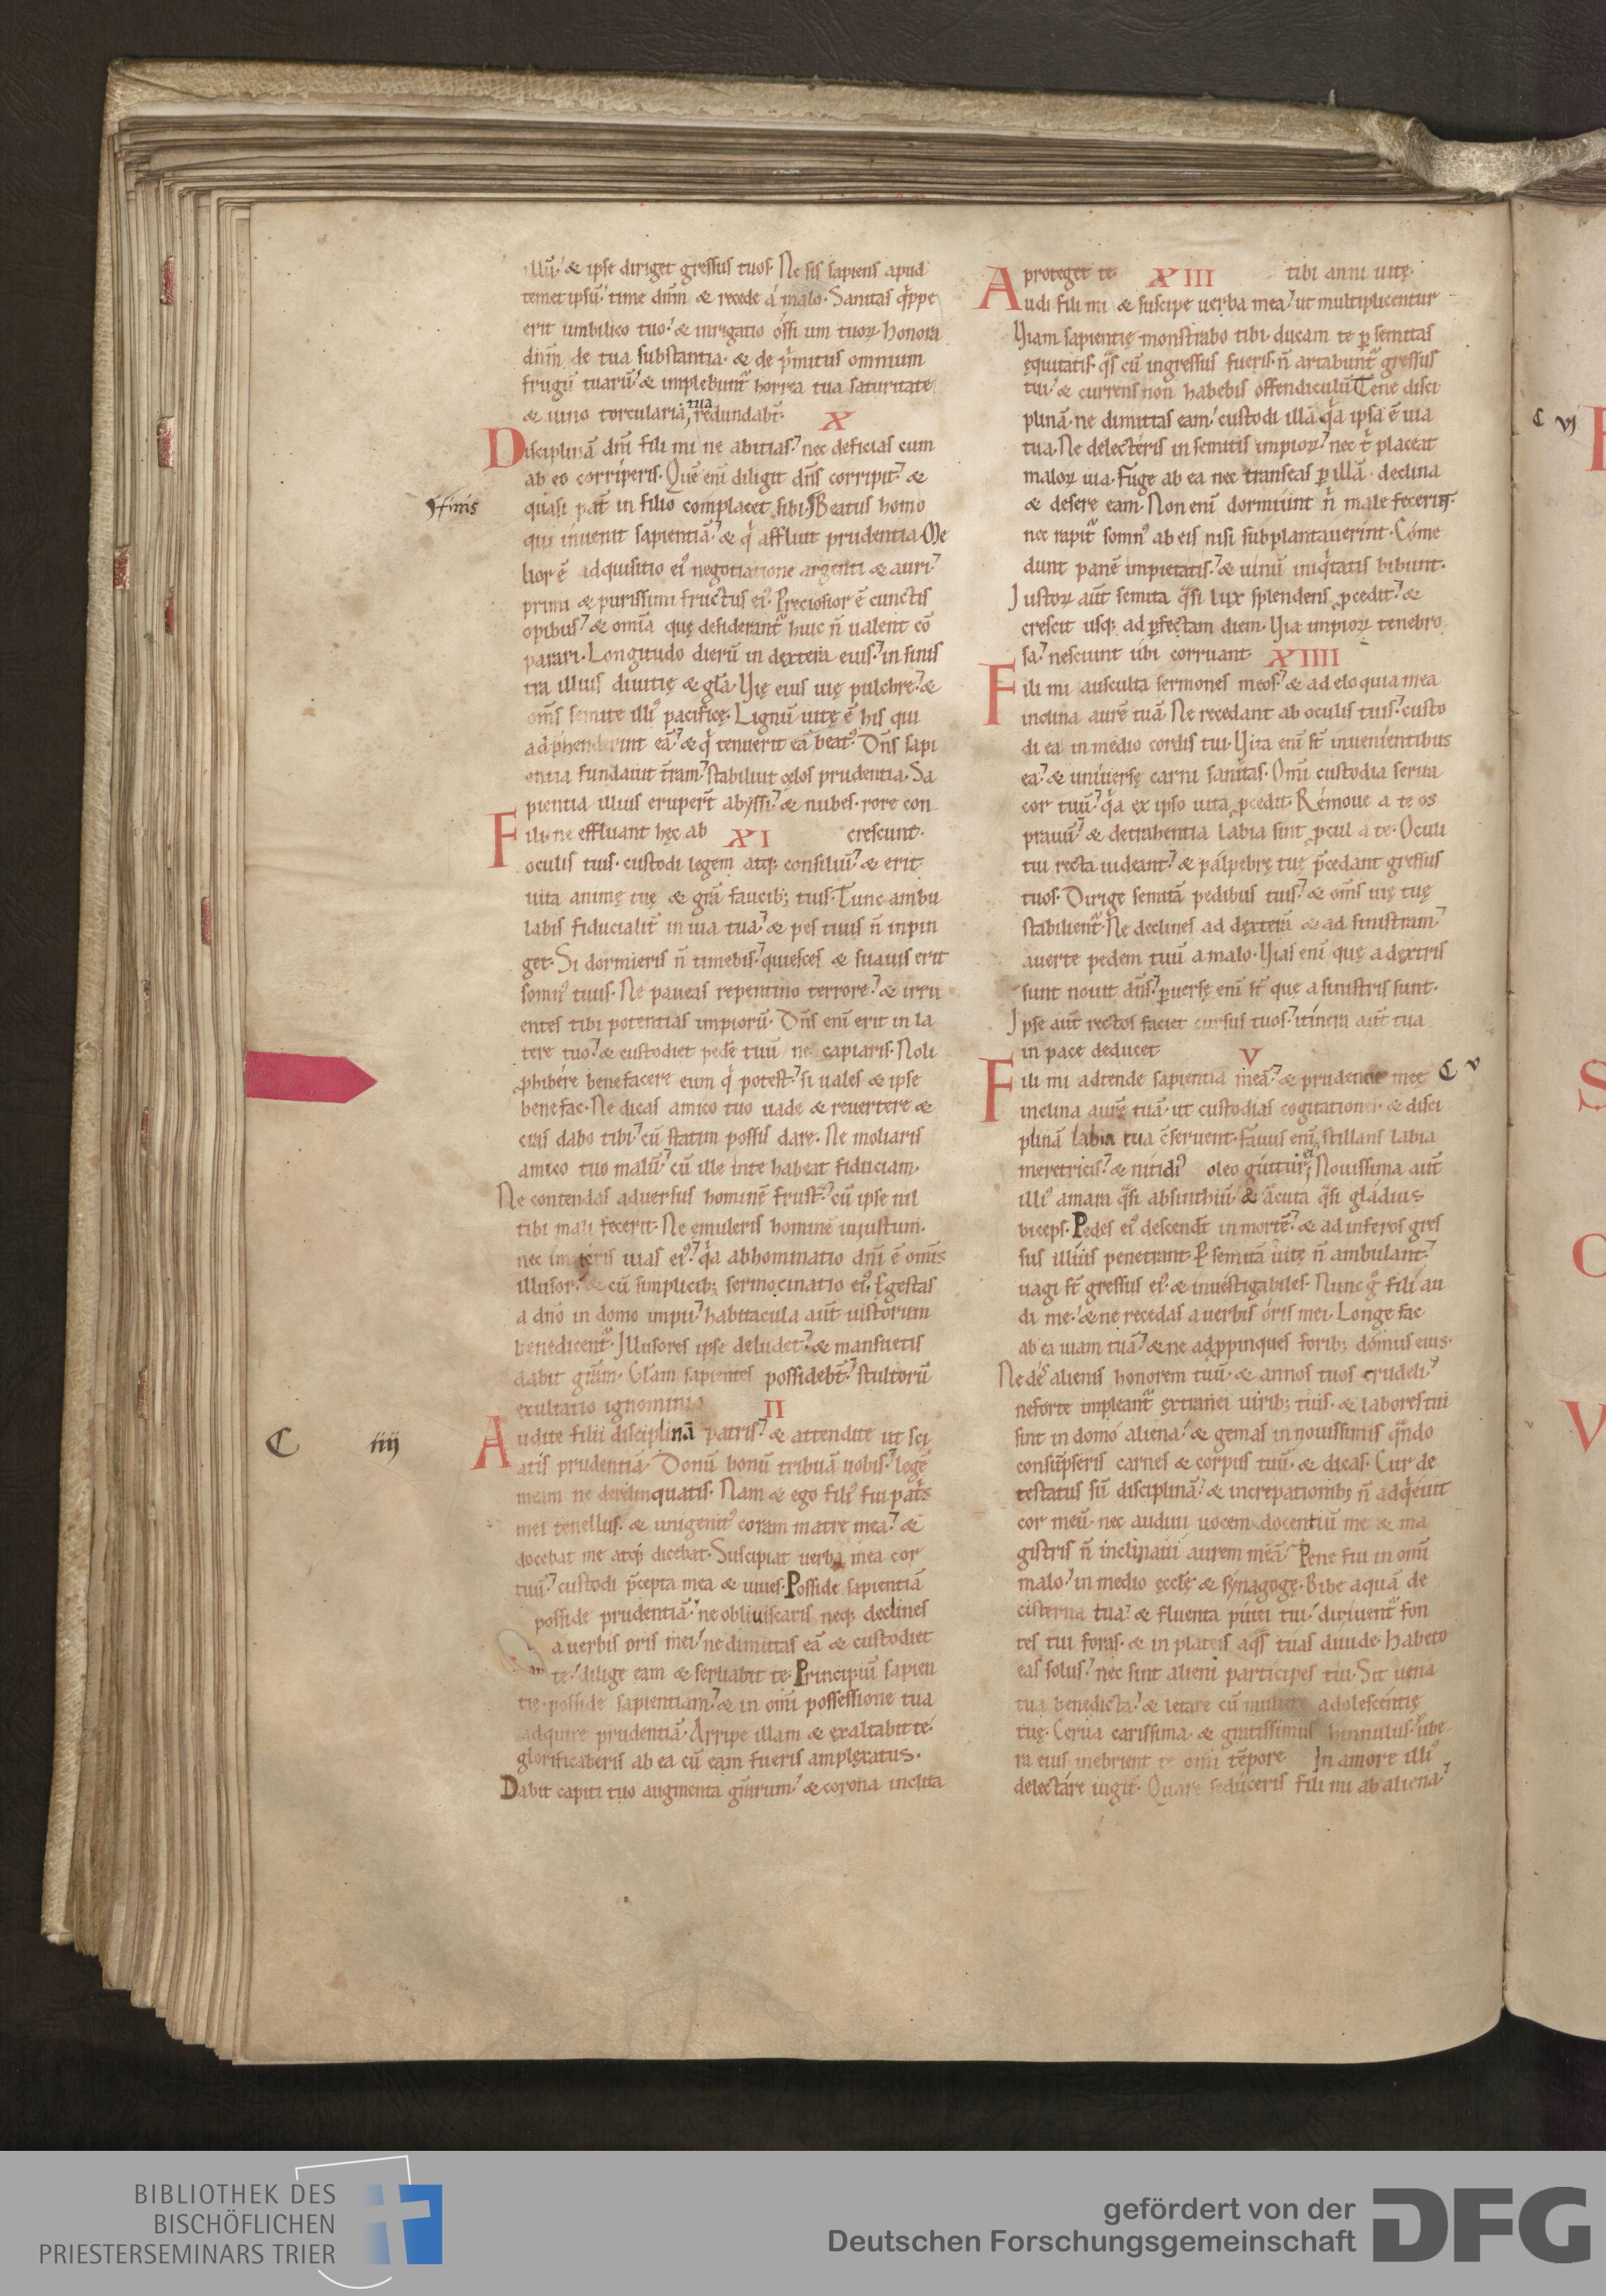 illū. & ipse diriget gressus tuos. Ne sis sapiens apud
temetipsū. time dnm̄ & recede a malo. Sanitas q̇ppe
erit umbilico tuo. & inrigatio ossium tuoꝝ. honora
dnm̄ de tua substantia. & de p̄mitiis omnium
frugū tuarū. & implebunt̄ horrea tua saturitate
& uino torcularia tua redundabt̄. X
Disciplinā dnī fili mi ne abitias. nec deficias cum
ab eo corriperis. Quē eni diligit dn̄s corripit. &
¶ finis
quasi pat̄ in filio complacet sibi. Beatus homo
qui inuenit sapientiā. & q̇ affluit prudentia. Me
lior ē adquisitio eiꝰ negotiatione argenti & auri
primi & purissimi fructus eiꝰ. Preciosior ē cunctis
opibus. & omīa quę desiderant̄ huic n̄ ualent cō
parari. Longitudo dierū in dextera eius. in sinis
tra illius diuitię & glā. Uię eius uię pulchre. &
om̄s semite illiꝰ pacificę. Lignū uitę ē his qui
adp̄henderint eā. & q̇ tenuerit eā beatꝰ. Dn̄s sapi
entia fundauit t̄ram. stabiliuit cęlos prudentia. Sa
pientia illius eruper̄t abyssi. & nubes rore con
Fili ne effluant hęc ab XI crescunt.
oculis tuis. custodi legem atq; consiliū. & erit
uita animę tuę & gr̄a faucib; tuis. Tunc ambu
labis fiducialit̄ in uia tua. & pes tuus n̄ inpin
get. Si dormieris n̄ timebis. quiesces & suauis erit
somnꝰ tuus. Ne paueas repentino terrore. & irru
entes tibi potentias impiorū. Dn̄s enī erit in la
tere tuo. & custodiet pedē tuū ne capiaris. Noli
ꝓhibere benefacere eum q̇ potest. si uales & ipse
benefac. Ne dicas amico tuo uade & reuertere &
cras dabo tibi. cū statim possis dare. Ne moliaris
amico tuo malū. cū ille inte habeat fiduciam.
Ne contendas aduersus hominē frustra. cū ipse nil
tibi mali fecerit. Ne emuleris hominē iniustum.
nec imiteris uias eiꝰ. q̇a abhominatio dnī ē omīs
illusor. & cū simplicib; sermocinatio eiꝰ. Egestas
a dnō in domo impii. habitacula aut̄ iustorum
benedicent̄. Illusores ipse deludet. & mansuetis
dabit grām. Glām sapientes possidebt̄. stultorū
exultatio ignominia II
C iiij
Audite filii disciplinā patris. & attendite ut sci
atis prudentiā. Donū bonū tribuā uobis. legē
meam ne derelinquatis. Nam & ego filiꝰ fui pat̄s
mei tenellus. & unigenitꝰ coram matre mea. &
docebat me atq; dicebat. Suscipiat uerba mea cor
tuū. custodi p̄cepta mea & uiues. Posside sapientiā
posside prudentiā. ne obliuiscaris neq; declines
a uerbis oris mei. ne dimittas eā & custodiet
te. dilige eam & seruabit te. Principiū sapien
tię. posside sapientiam. & in omī possessione tua
adquire prudentiā. Arripe illam & exaltabit te.
glorificaberis ab ea cū eam fueris amplexatus.
Dabit capiti tuo augmenta grārum. & corona inclita
proteget te. XIII tibi anni uitę.
Audi fili mi & suscipe uerba mea. ut multiplicentur
Uiam sapientię monstrabo tibi. ducam te ꝑ semitas
ęquitatis. q̄s cū ingressus fueris. n̄ artabunt̄ gressus
tui. & currens non habebis offendiculū. Tene disci
plinā. ne dimittas eam. custodi illā q̇a ipsa ē uia
tua. Ne delecteris in semitis impioꝝ. nec t̄ placeat
maloꝝ uia. Fuge ab ea nec transeas ꝑ illā. declina
& desere eam. Non enī dormiunt n̄ male fecerint.
nec rapit̄ somnꝰ ab eis nisi subplantauerint. Come
dunt panē impietatis. & uinū iniq̇tatis bibunt.
Iustoꝝ aut̄ semita q̄si lux splendens ꝓcedit. &
crescit usq; ad ꝑfectam diem. Uia impioꝝ tenebro
sa. nesciunt ubi corruant XIIII
Fili mi ausculta sermones meos. & ad eloquia mea
inclina aurē tuā. Ne recedant ab oculis tuis. custo
di ea in medio cordis tui. Uita enī st̄ inuenientibus
ea. & uniuersę carni sanitas. Omī custodia serua
cor tuū. q̇a ex ipso uita ꝓcedit. Remoue a te os
prauū. & detrahentia labia sint ꝓcul a te. Oculi
tui recta uideant. & palpebrę tuę p̄cedant gressus
tuos. Dirige semitā pedibus tuis. & om̄s uię tuę
stabilient̄. Ne declines ad dexterā & ad sinistram.
auerte pedem tuū a malo. Uias enī quę a dextris
sunt nouit dn̄s. ꝑuersę enī st̄ que a sinistris sunt.
Ipse aut̄ rectos faciet cursus tuos. itinera aut̄ tua
in pace deducet V
Fili mi adtende sapientia meā. & prudencie mee C v
inclina aurē tuā. ut custodias cogitationes. & disci
plinā labia tua c̄seruent. Fauus enī stillans labia
meretricis. & nitidiꝰ oleo guttur eiꝰ. Nouissima aut̄
illiꝰ amara q̄si absinthiū. & acuta q̄si gladius
biceps. Pedes eiꝰ descendt̄ in mortē. & ad inferos gres
sus illius penetrant. P semitā uitę n̄ ambulant.
uagi st̄ gressus eiꝰ. & inuestigabiles. Nunc g̊ fili au
di me. & ne recedas a uerbis oris mei. Longe fac
ab ea uiam tuā. & ne adꝓpinques forib; domus eius.
Ne des alienis honorem tuū. & annos tuos crudeli
neforte impleant̄ extranei uirib; tuis. & labores tui
sint in domo aliena. & gemas in nouissimis q̄ndo
consūpseris carnes & corpus tuū. & dicas. Cur de
testatus sū disciplinā. & increpationib; n̄ adq̇euit
cor meū. nec audiui uocem docentiū me & ma
gistris n̄ inclinaui aurem meā. Pene fui in omī
malo. in medio ecclę & synagogę. Bibe aquā de
cisterna tua. & fluenta putei tui. diriuent̄ fon
tes tui foras. & in plateis aq̄s tuas diuide. habeto
eas solus. nec sint alieni participes tui. Sit uena
tua benedicta. & letare cū muliere adolescentię
tuę. Cerua carissima. & gratissimus hinnulus. ube
ra eius inebrient te omī tēpore. In amore illiꝰ
delectare iugit̄. Quare seduceris fili mi ab aliena.
C vj
BIBLIOTHEK DES
BISCHÖFLICHEN
PRIESTERSEMINARS TRIER
gefördert von der
Deutschen Forschungsgemeinschaft
DFG